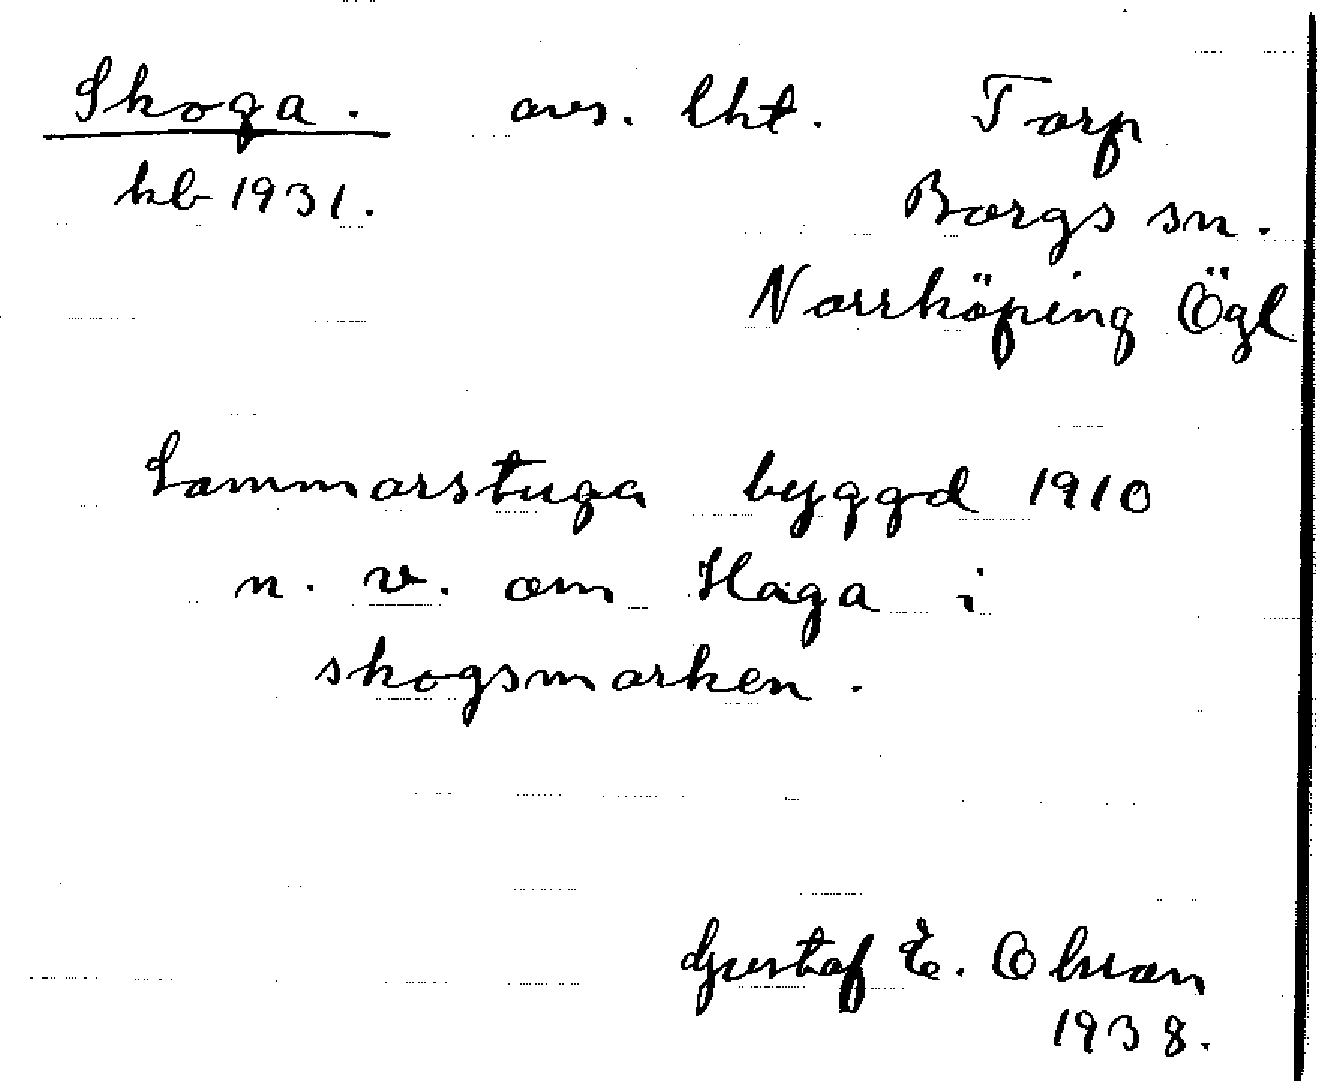 Skoga. avs. lht. Torp
kb 1931. Borgs sn.
Norrköping Ögl
Sommarstuga byggd 1910
n. v. om Haga i
skogsmarken.
Gustaf E. Olsson
1938.